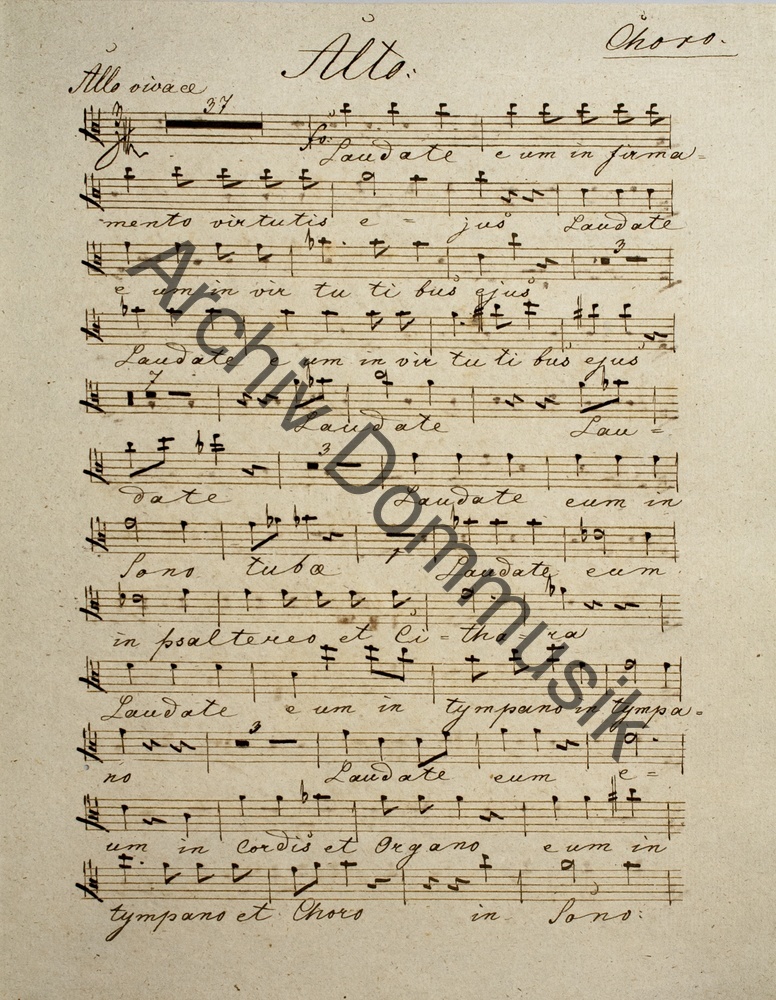 Choro.
Alto:
Allo vivace
37
fo: Laudate eum in firma-
mento virtutis e - jus Laudate
3
eum in vir tu ti bus ejus
Laudate eum in vir tu ti bus ejus
7
Laudate Lau =
3
date Laudate eum in
Sono tubæ Laudate eum
1
in psaltereo et Ci - tha - ra
Laudate eum in tympano in tympa-
3
no Laudate eum e =
um in Cordis et Organo eum in
tympano et Choro in Sono:
Archiv Dommusik